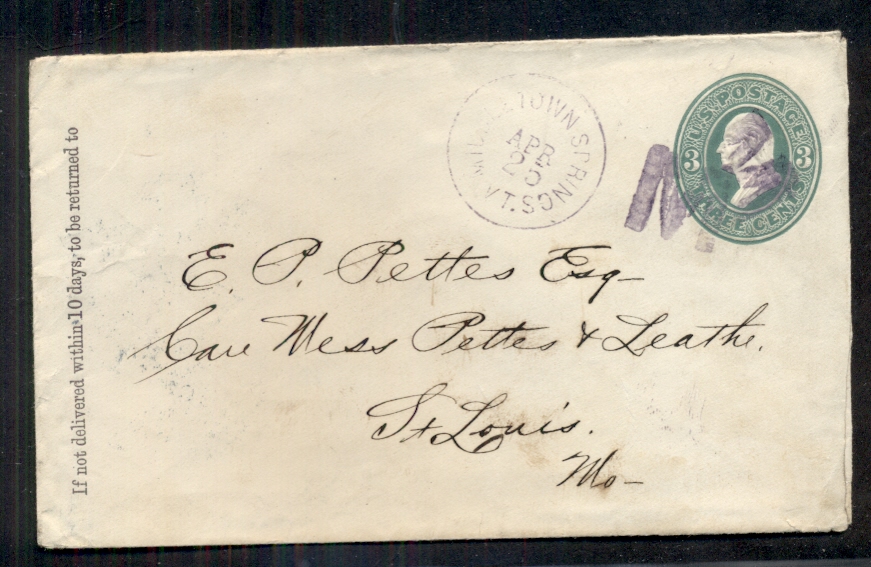 If not delivered within 10 days, to be returned to
TOWN SPRINGS VT.
APR
25
U.S. POSTAGE
3 3
THREE CENTS
E. P. Pettes Esq—
Care Mess Pettes & Leathe.
St Louis.
Mo—